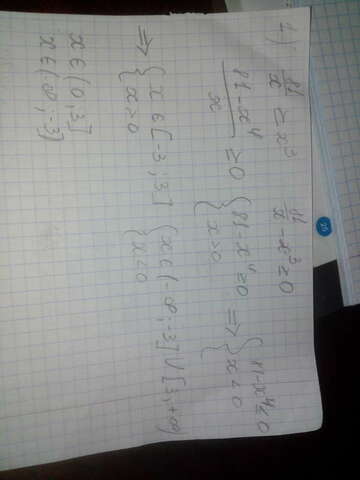 4) 81/x ≥ x³   81/x - x³ ≥ 0
(81 - x⁴)/x ≥ 0   { 81 - x⁴ ≥ 0   x > 0   => { 81 - x⁴ ≤ 0   x < 0
=> { x ∈ [-3; 3]   x > 0   { x ∈ (-∞; -3] ∪ [3; +∞)   x < 0
x ∈ (0; 3]
x ∈ (-∞; -3]